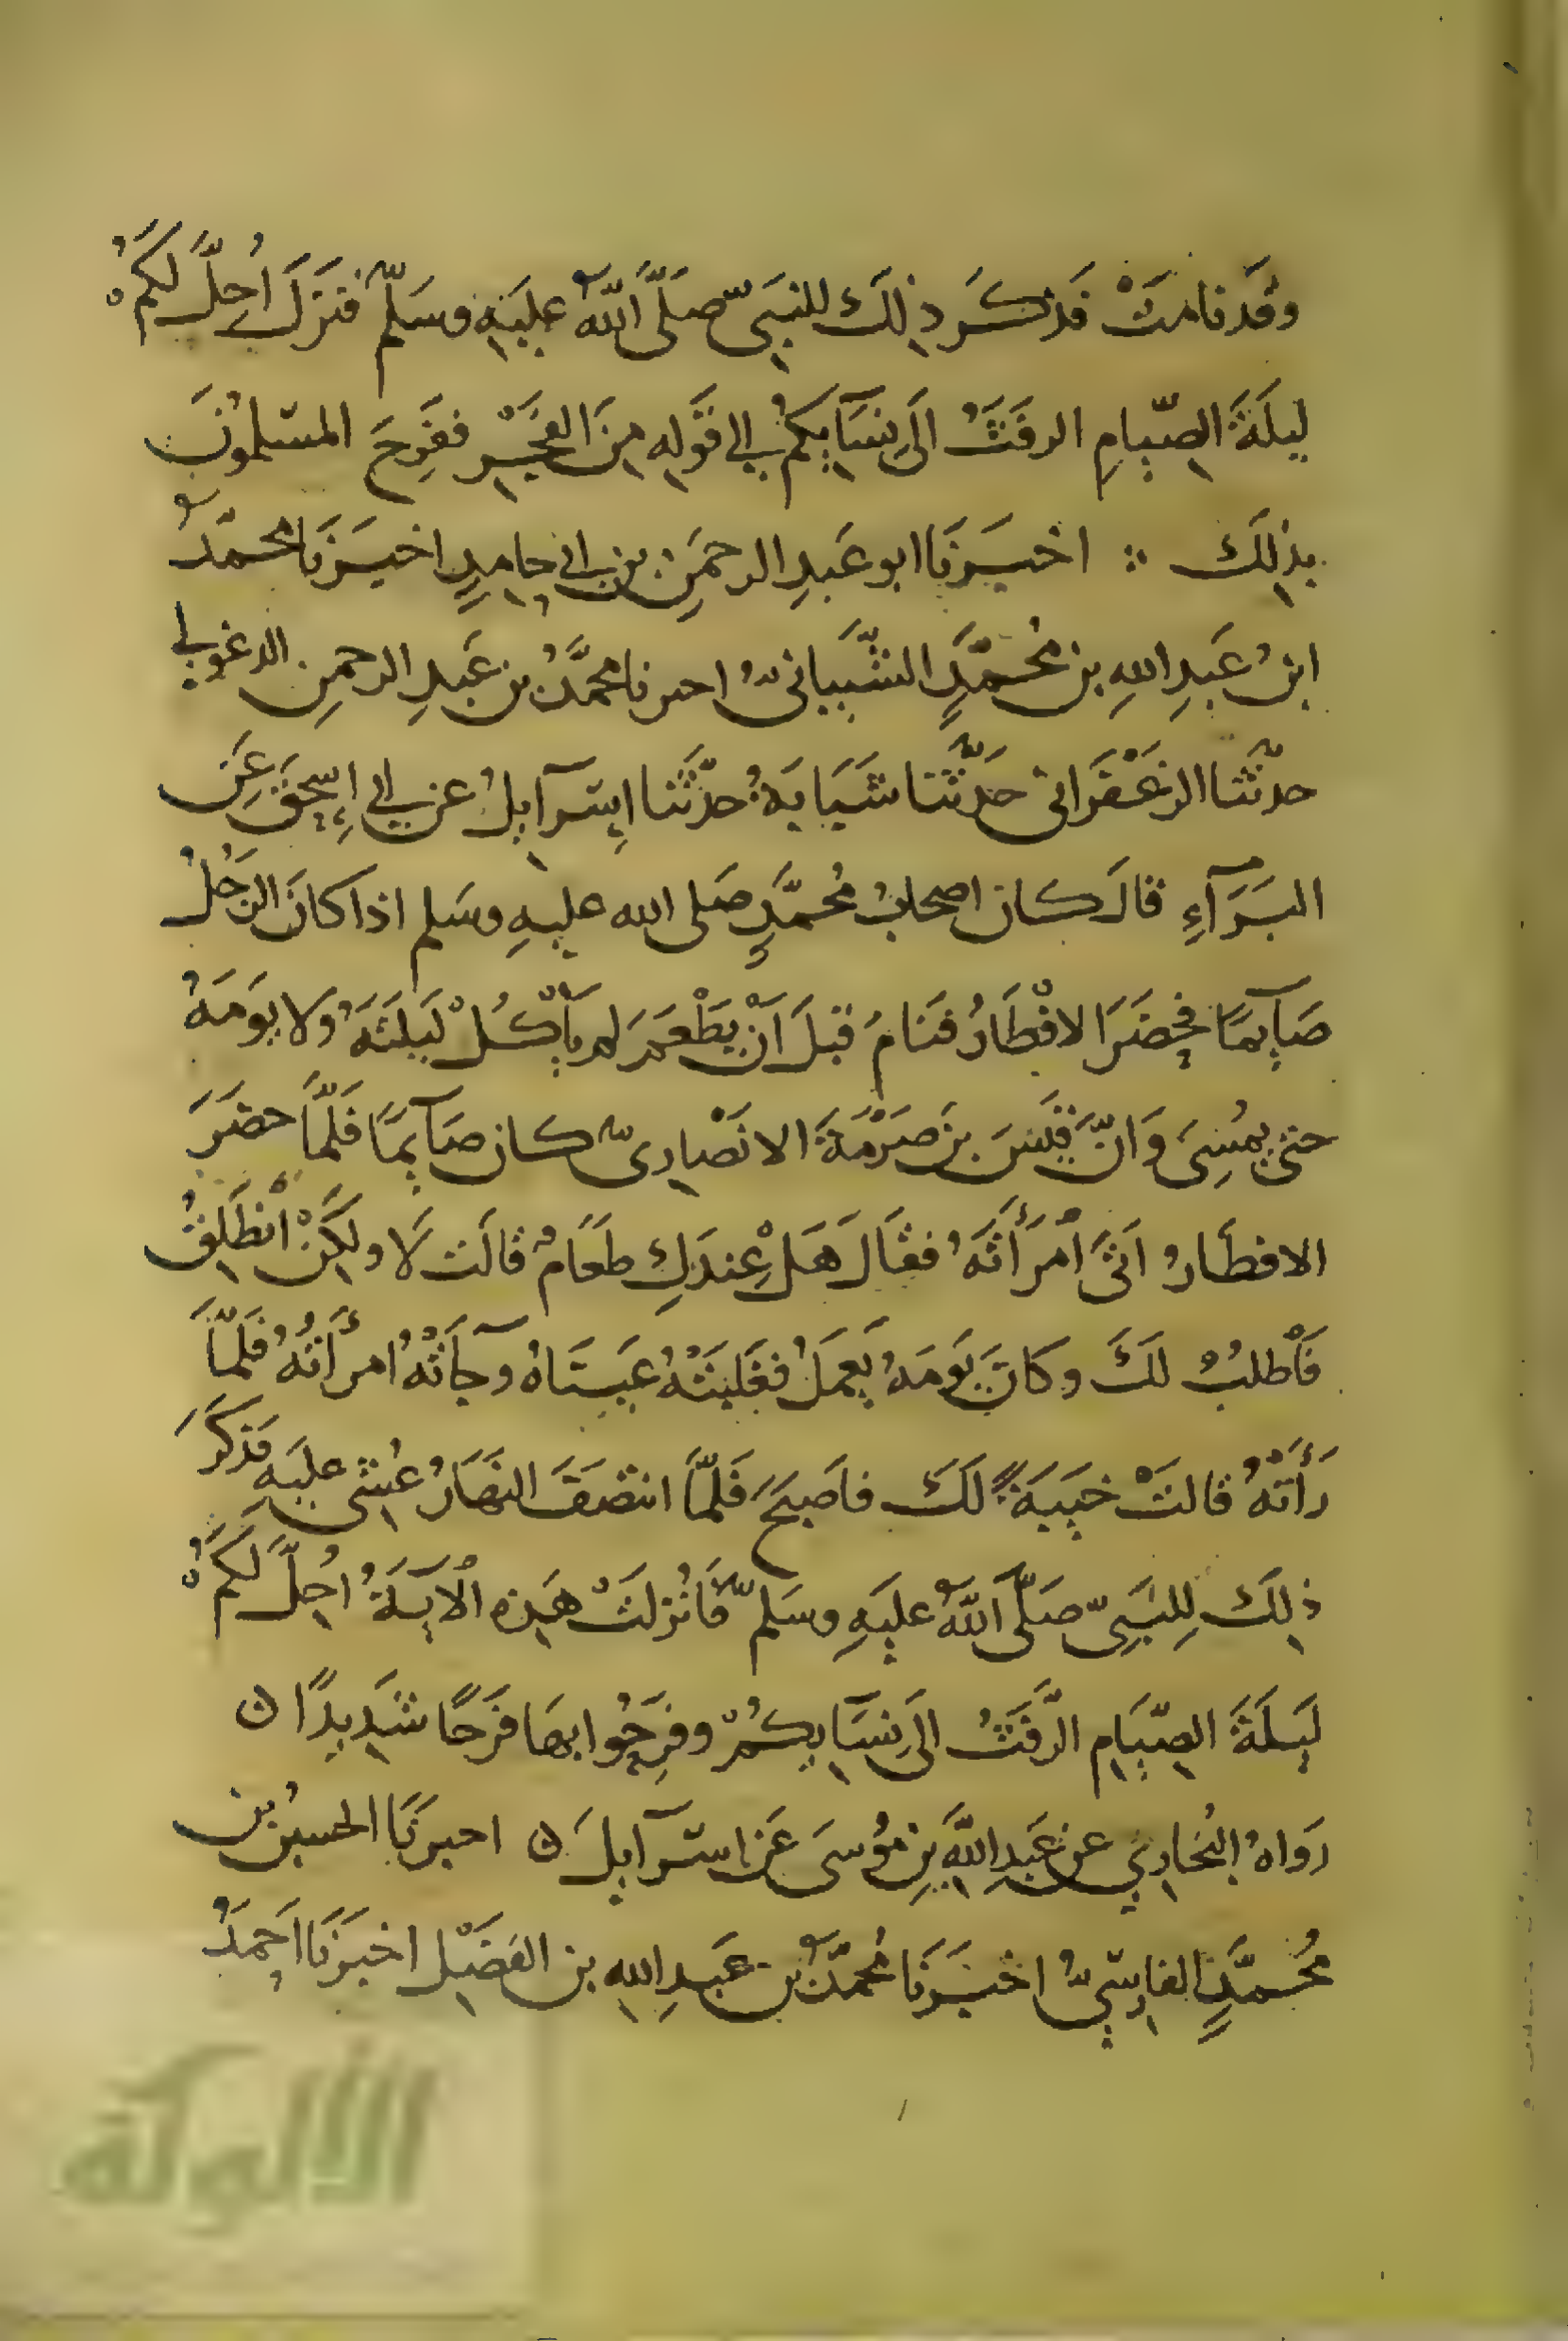 وقد نامت فذكر ذلك للنبي صلى الله عليه وسلم فنزل أحل لكم
ليلة الصيام الرفث الى نسايكم الى قوله من الفجر ففرح المسلمون
بذلك ⁘ اخبرنا ابو عبد الرحمن بن ابي حامد اخبرنا محمد
ابن عبد الله بن محمد الشيباني اخبرنا محمد بن عبد الرحمن الدغولي
حدثنا الزعفراني حدثنا شبابة حدثنا اسرآيل عن ابي إسحق عن
البرآء قال كان اصحاب محمد صلى الله عليه وسلم اذا كان الرجل
صآيما فحضر الافطار فنام قبل أن يطعم لم يأكل ليلته ولا يومه
حتى يمسي وان قيس بن صرمة الانصاري كان صآيما فلما حضر
الافطار اتى امرأته فقال هل عندك طعام قالت لا ولكن انطلق
فأطلب لك وكان يومه يعمل فغلبته عيناه وجآته امرأته فلما
رأته قالت خيبة لك فاصبح فلما انتصف النهار غشي عليه فذكر
ذلك للنبي صلى الله عليه وسلم فانزلت هذه الآية أحل لكم
ليلة الصيام الرفث الى نسايكم وفرحوا بها فرحا شديدا ن
رواه البخاري عن عبيد الله بن موسى عن اسرآيل ن اخبرنا الحسين بن
محمد الفارسي اخبرنا محمد بن عبد الله بن الفضيل اخبرنا احمد
الألوكة